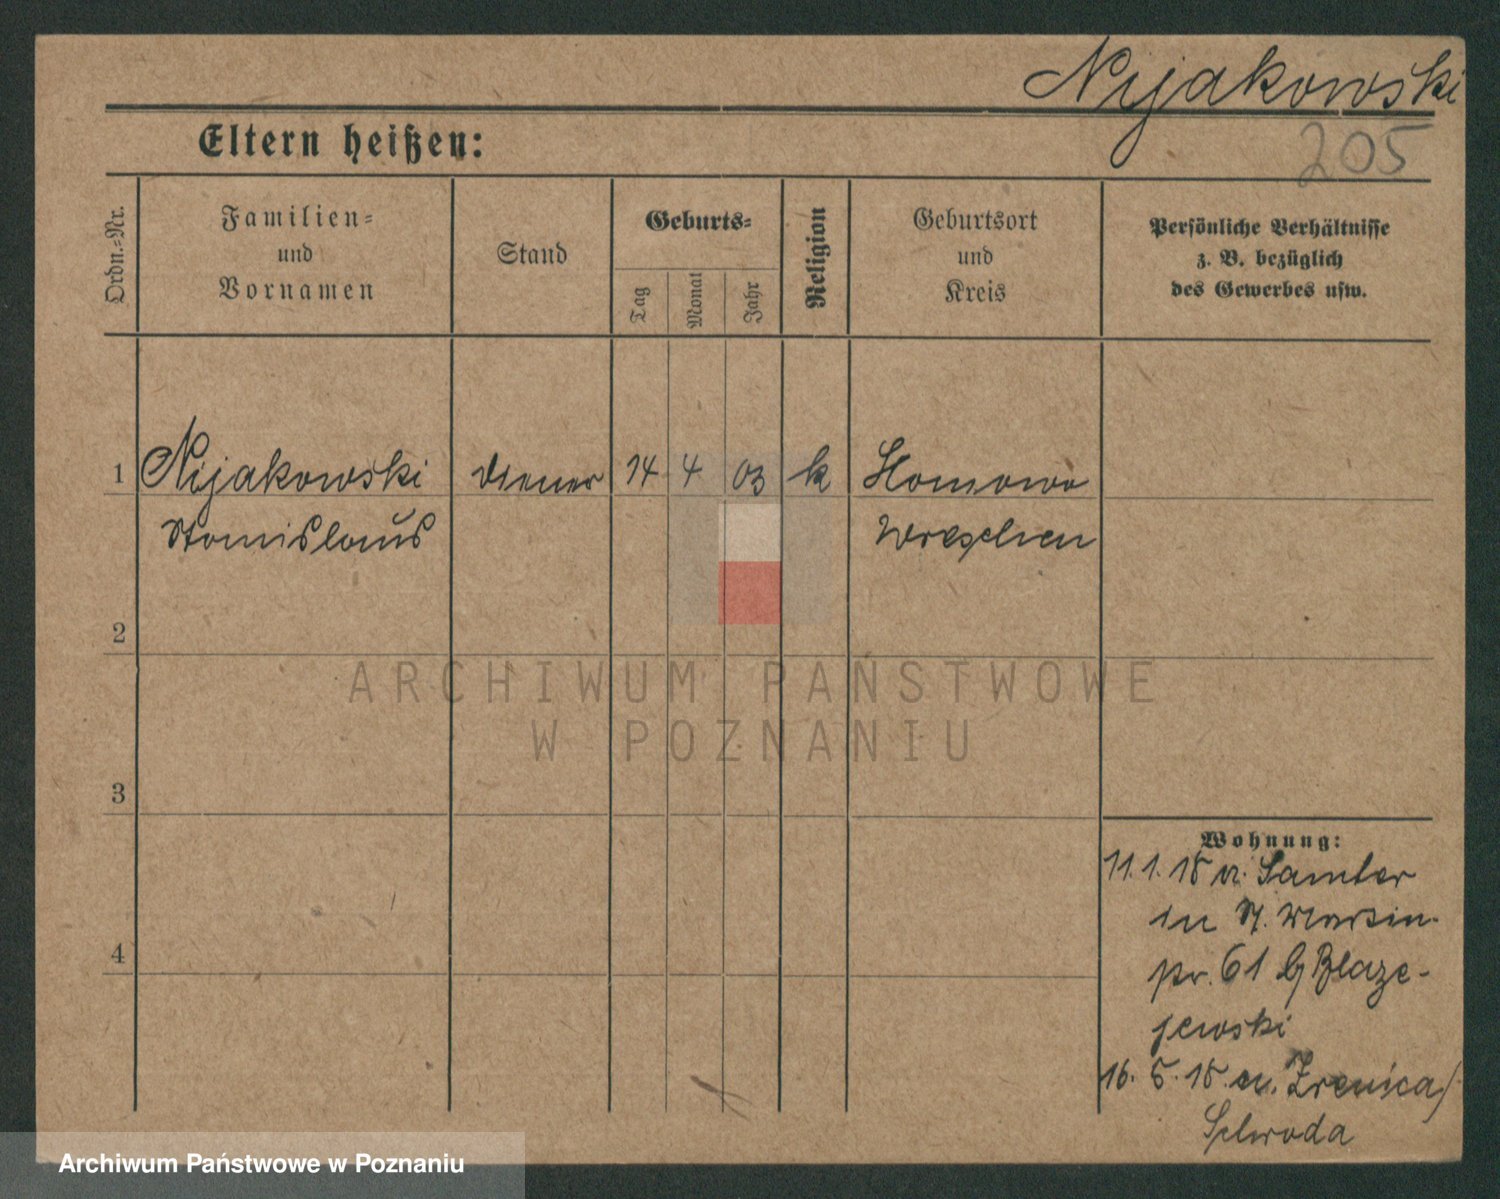 Nijakowski
205
Eltern heißen:
Ordn.=Nr.
Familien=
und
Vornamen
Stand
Geburts=
Tag
Monat
Jahr
Religion
Geburtsort
und
Kreis
Persönliche Verhältnisse
z. B. bezüglich
des Gewerbes usw.
1
Nijakowski
Diener
14
4
03
k
Slomowo
Stanislaus
Wreschen
2
ARCHIWUM PAŃSTWOWE
W POZNANIU
3
Wohnung:
11. 1. 18 v. Samter
in St. Martin-
4
61 Blaze-
jewski
16. 5. 18. n. Zrenica/
Schroda
Archiwum Państwowe w Poznaniu